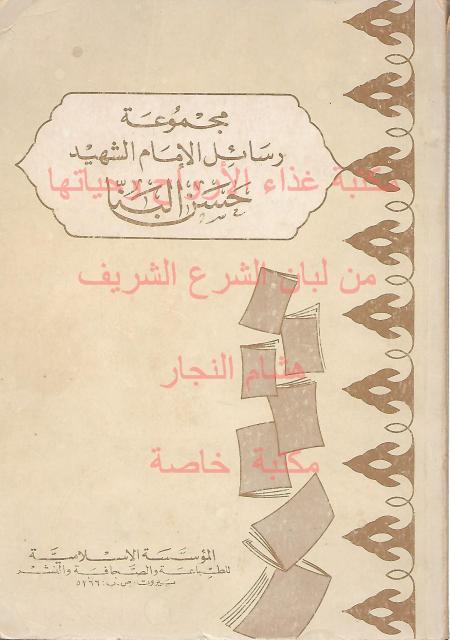 مجموعة
رسائل الإمام الشهيد
مكتبة غذاء الأرواح وحياتها
حسن البنا
من لبان الشرع الشريف
هشام النجار
مكتبة خاصة
المؤسسة الإسلامية
للطباعة والصحافة والنشر
بيروت: ص.ب: ٥٢٦٦